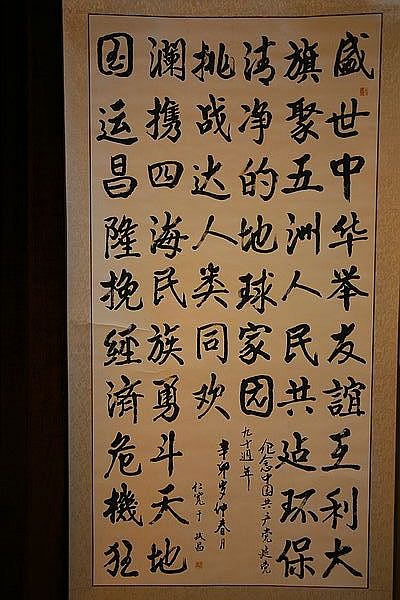 盛世中华举友谊互利大
旗聚五洲人民共建环保
清净的地球家园
国运昌隆挽經濟危機狂
澜携四海民族勇斗天地
挑战达人类同欢
纪念中国共产党建党
九十週年
辛卯岁仲春月
仁宽于